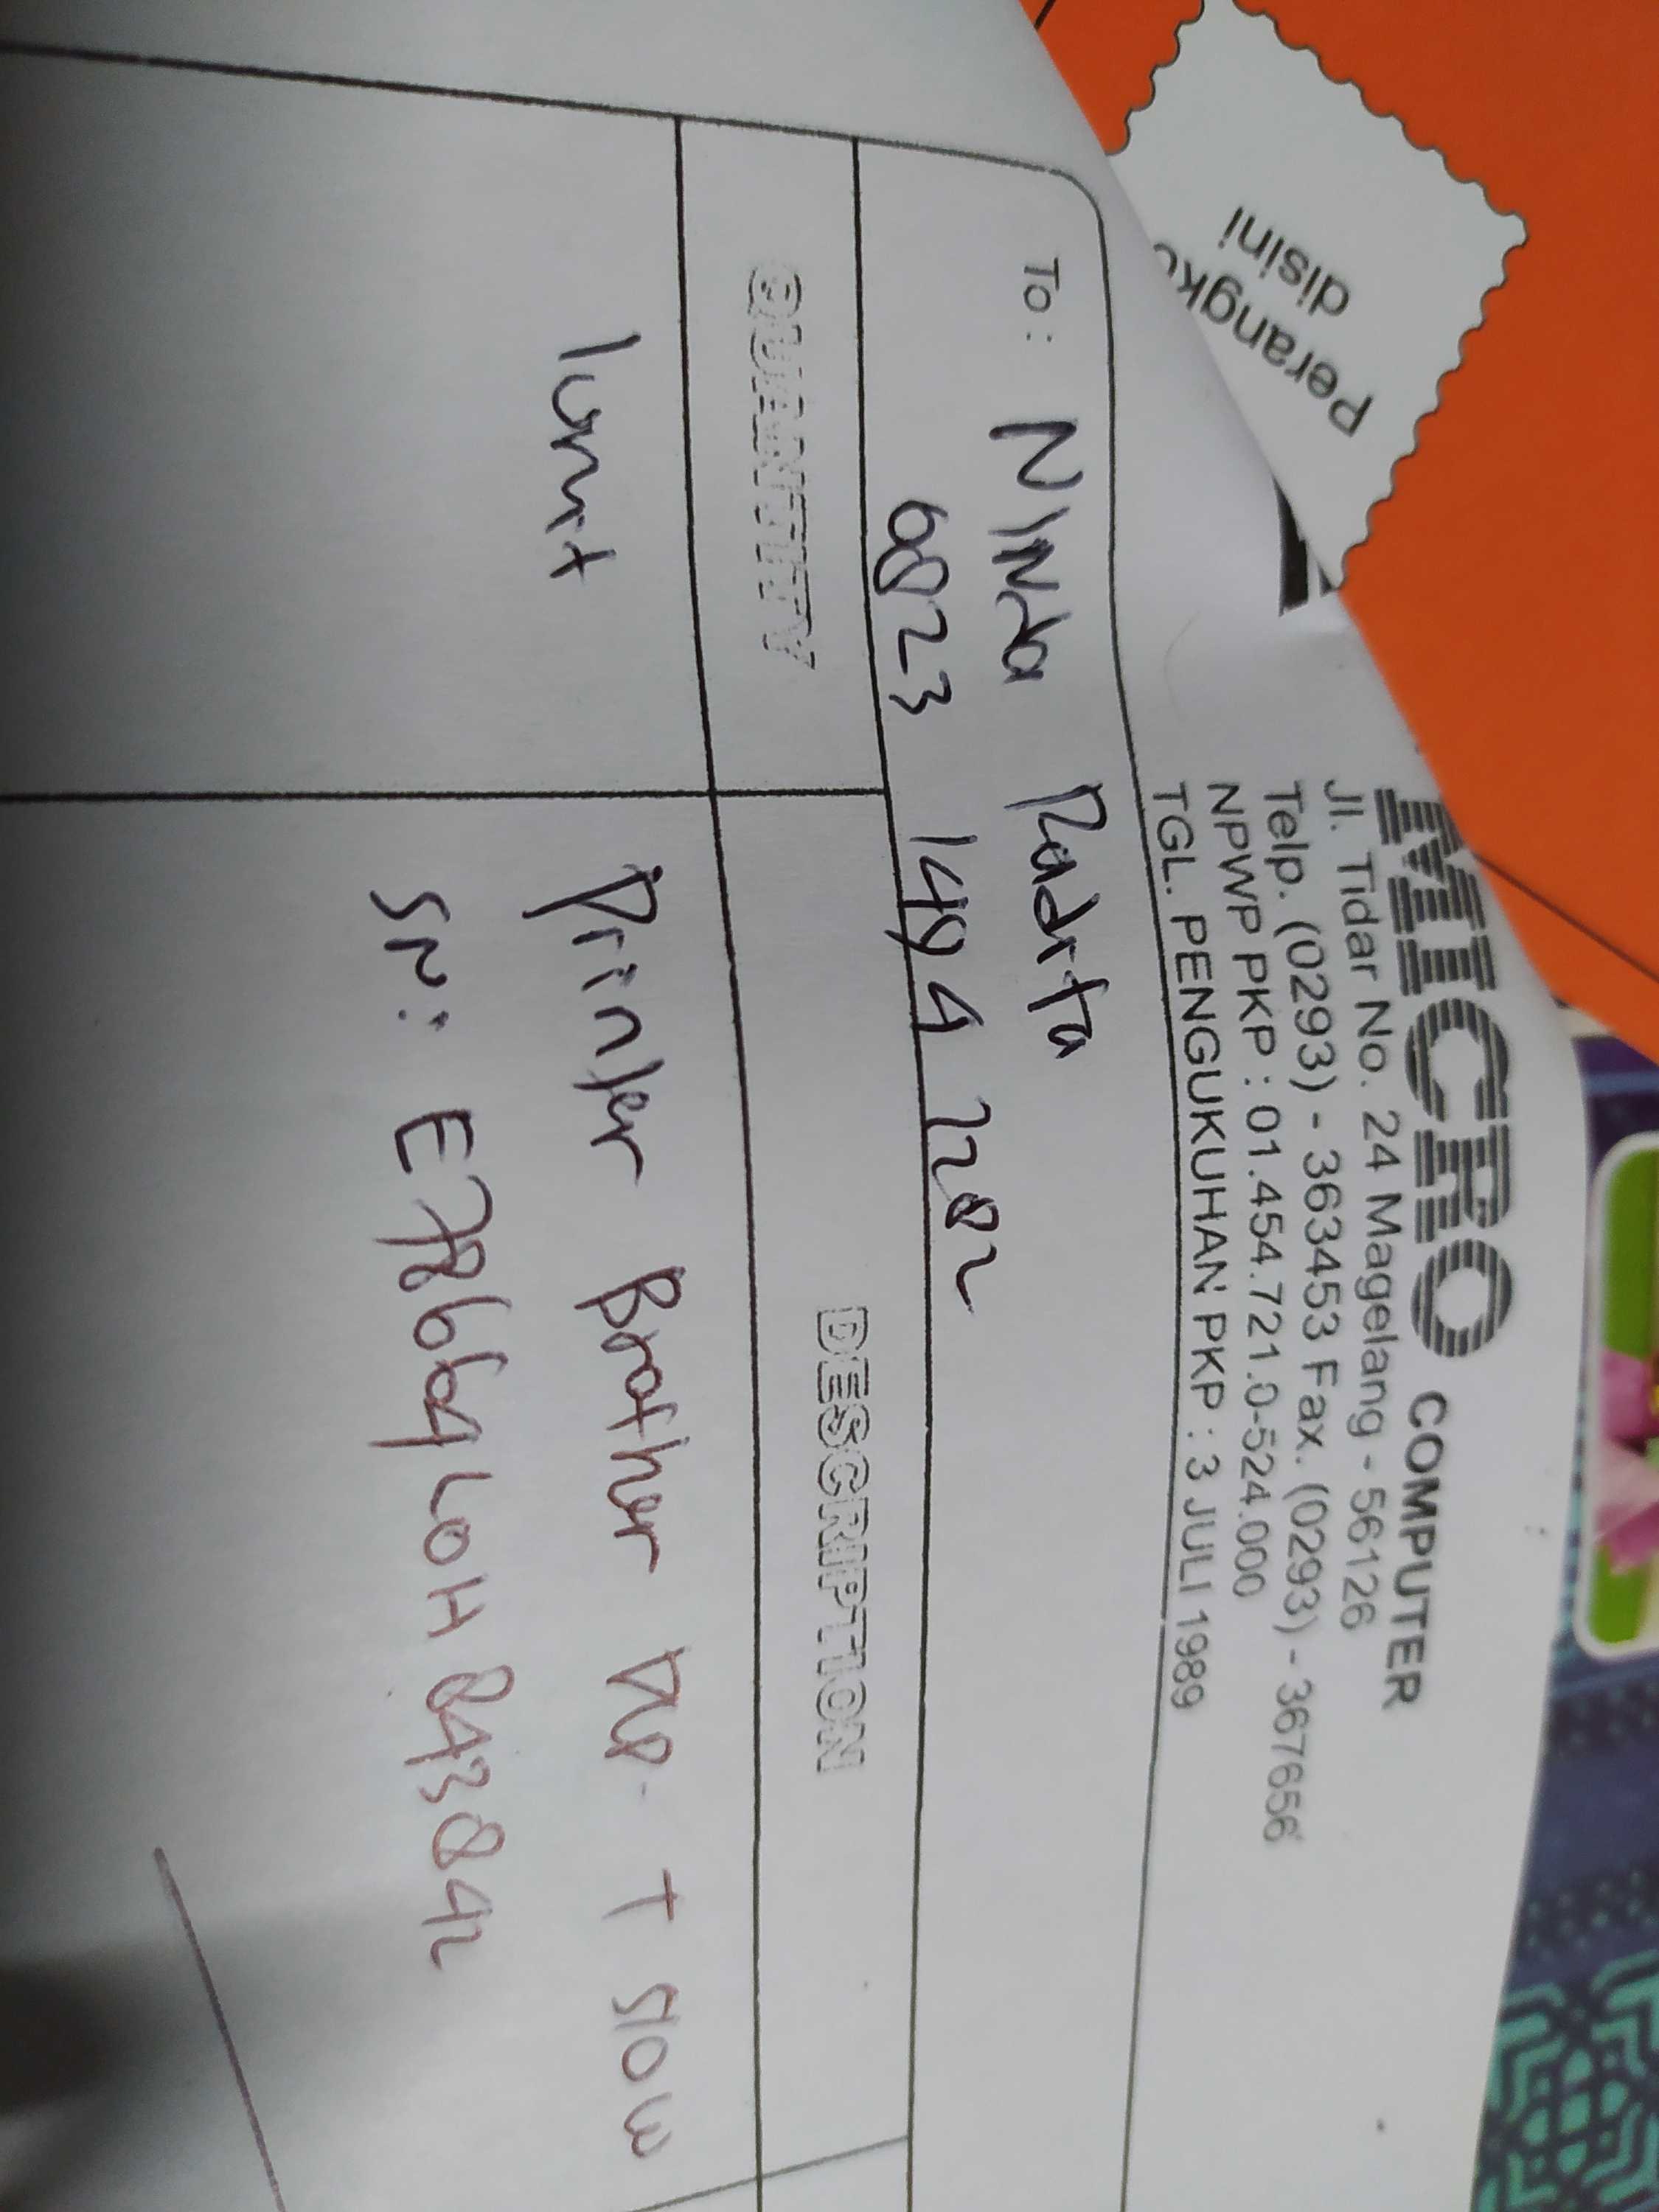 MICRO COMPUTER
Jl. Tidar No. 24 Magelang - 56126
Telp. (0293) - 363453 Fax. (0293) - 367656
NPWP PKP : 01.454.721.0-524.000
TGL. PENGUKUHAN PKP : 3 JULI 1989
To : Ninda Radita
6823 1494 7202
QUANTITY DESCRIPTION
1 unit Printer Brother T 510W
SN : E78664L0H843842
Perangko
disini